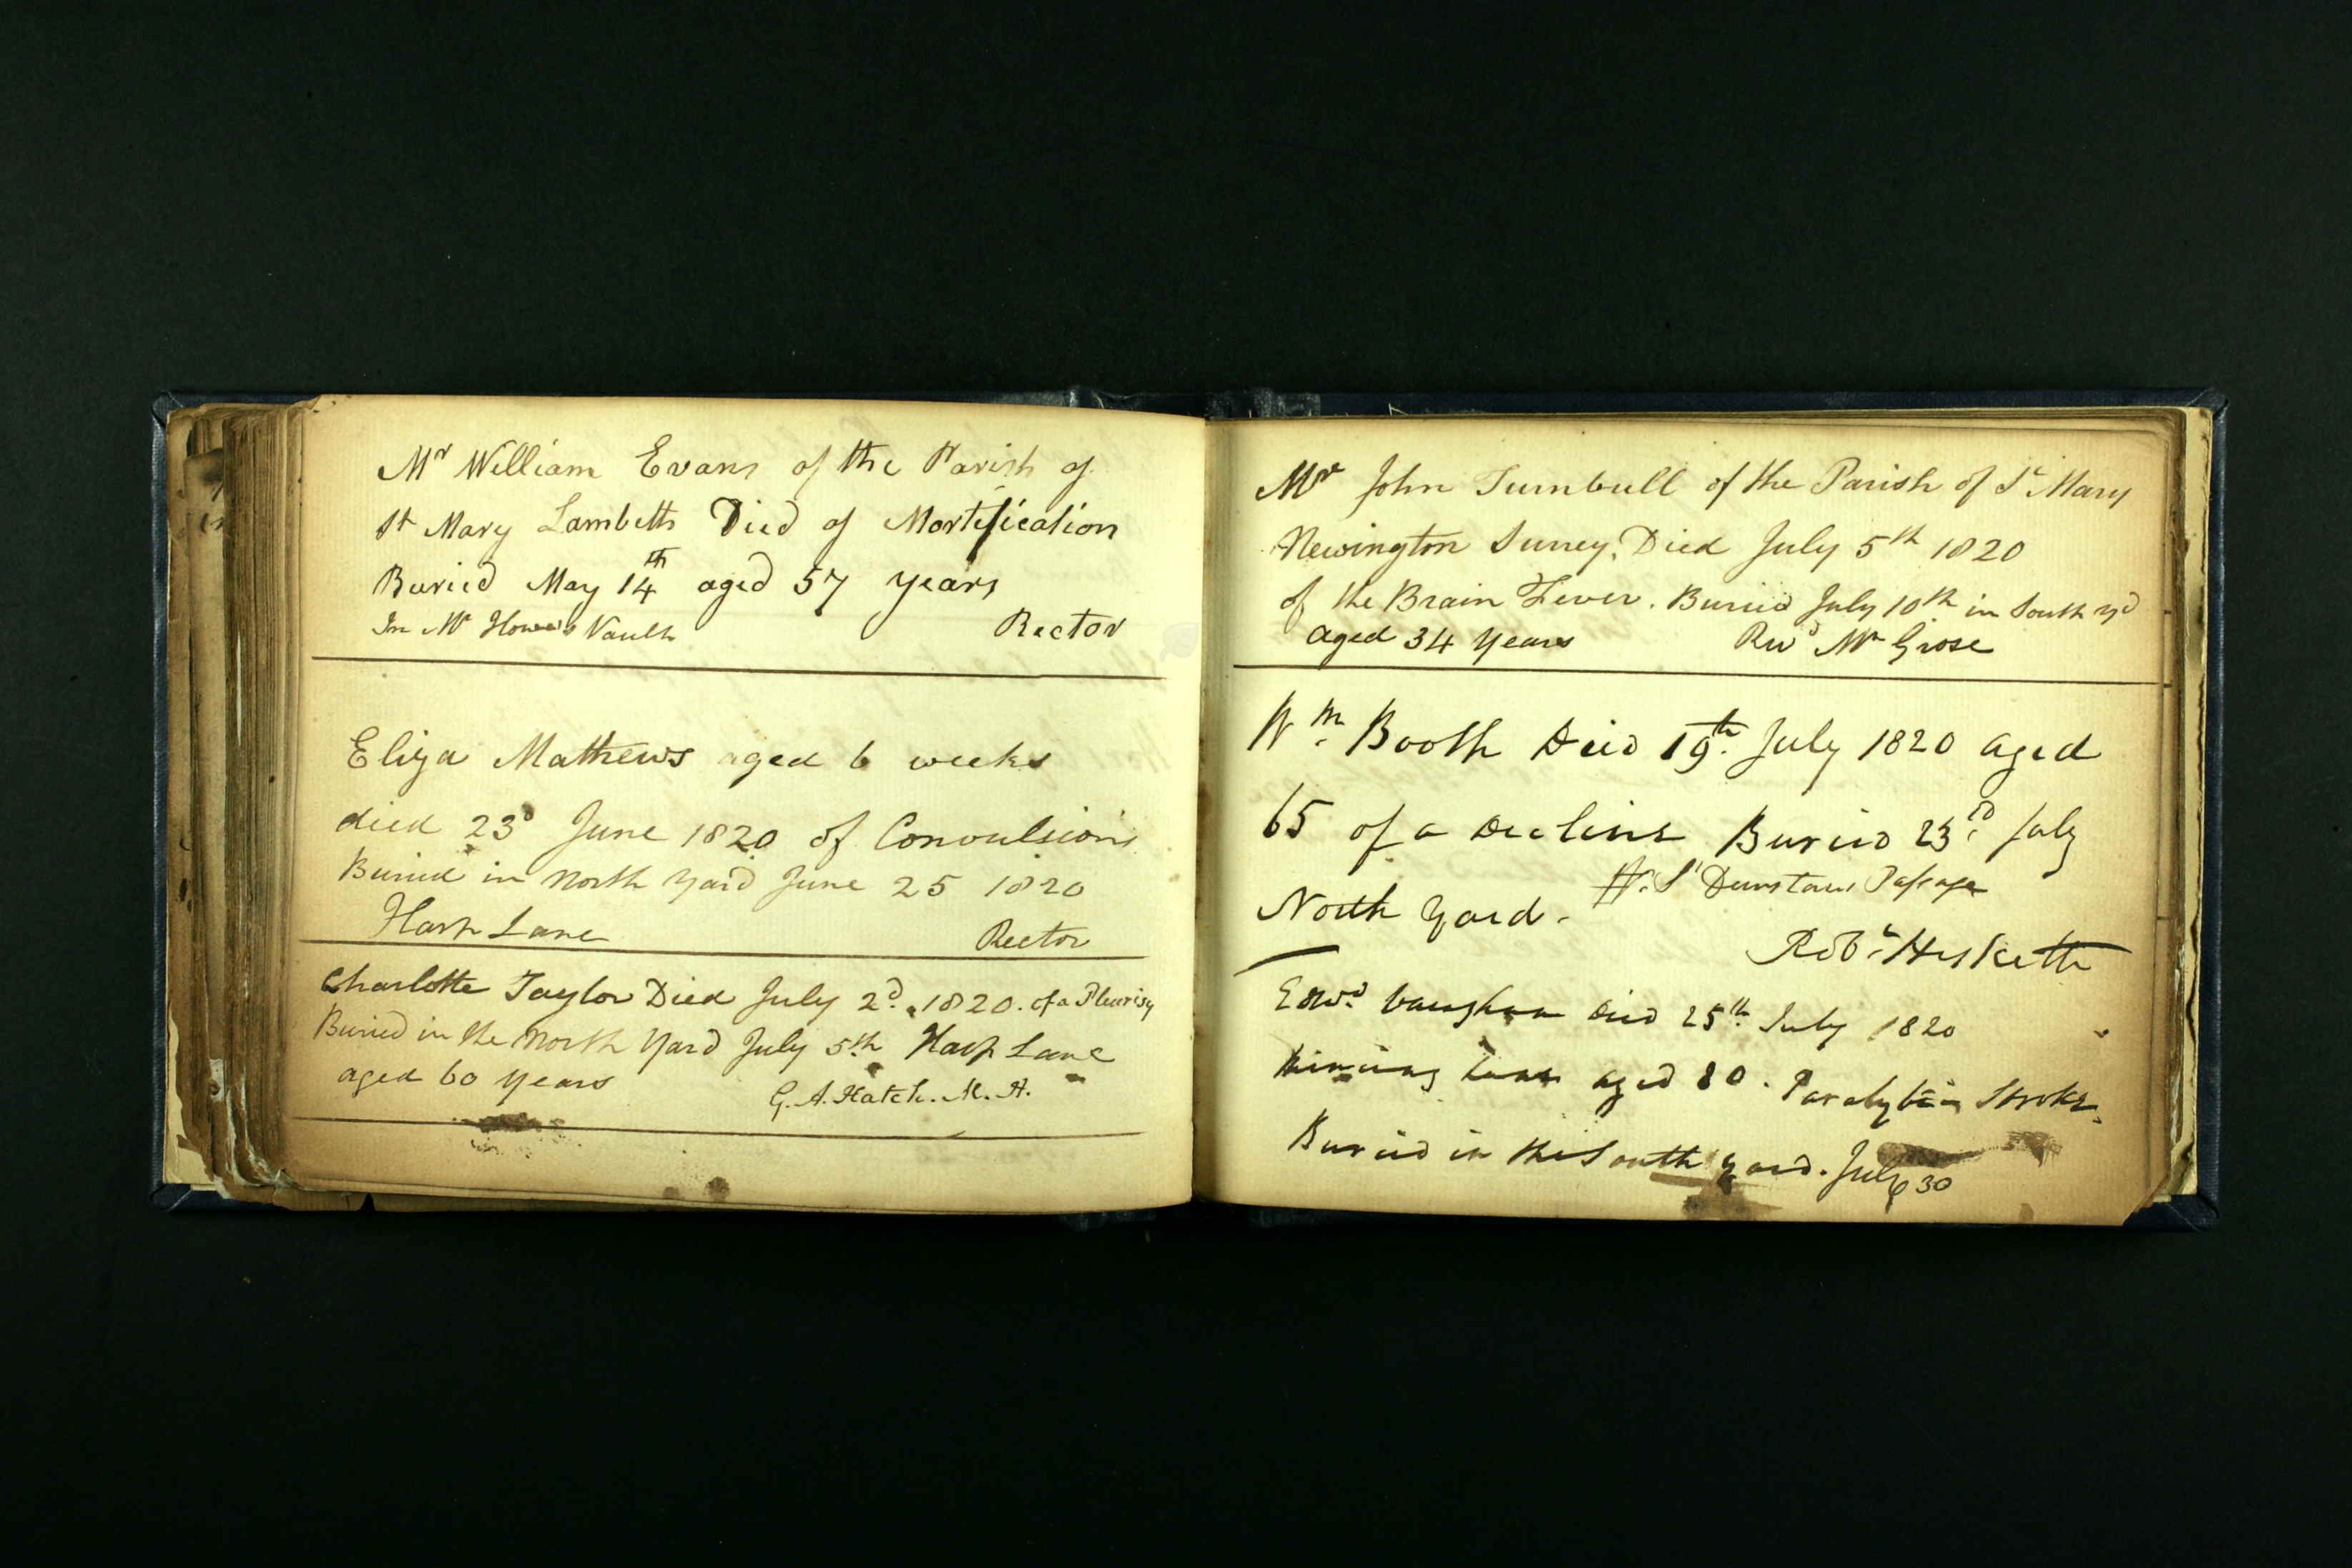 Mr William Evans of the Parish of
St Mary Lambeth Died of Mortification
Buried May 14th aged 57 years
In Mr Howes Vault Rector
Eliza Mathews aged 6 weeks
died 23d June 1820 of Convulsions
Buried in North Yard June 25 1820
Harp Lane Rector
Charlotte Taylor Died July 2d. 1820. of a Pleurisy
Buried in the North Yard July 5th Harp Lane
aged 60 years G. A. Hatch. M. A.
Mr John Turnbull of the Parish of St Mary
Newington Surrey. Died July 5th 1820
of the Brain Fever. Buried July 10th in South Yd
aged 34 Years Revd Mr Grose
Wm. Booth Died 19th. July 1820 aged
65 of a Decline Buried 23d. July
St Dunstans Passage
North Yard.
Robt. Hesketh
Edwd. Vaughan Died 25th. July 1820
Mincing Lane aged 80. Paralytic Stroke.
Buried in the South Yard. July 30